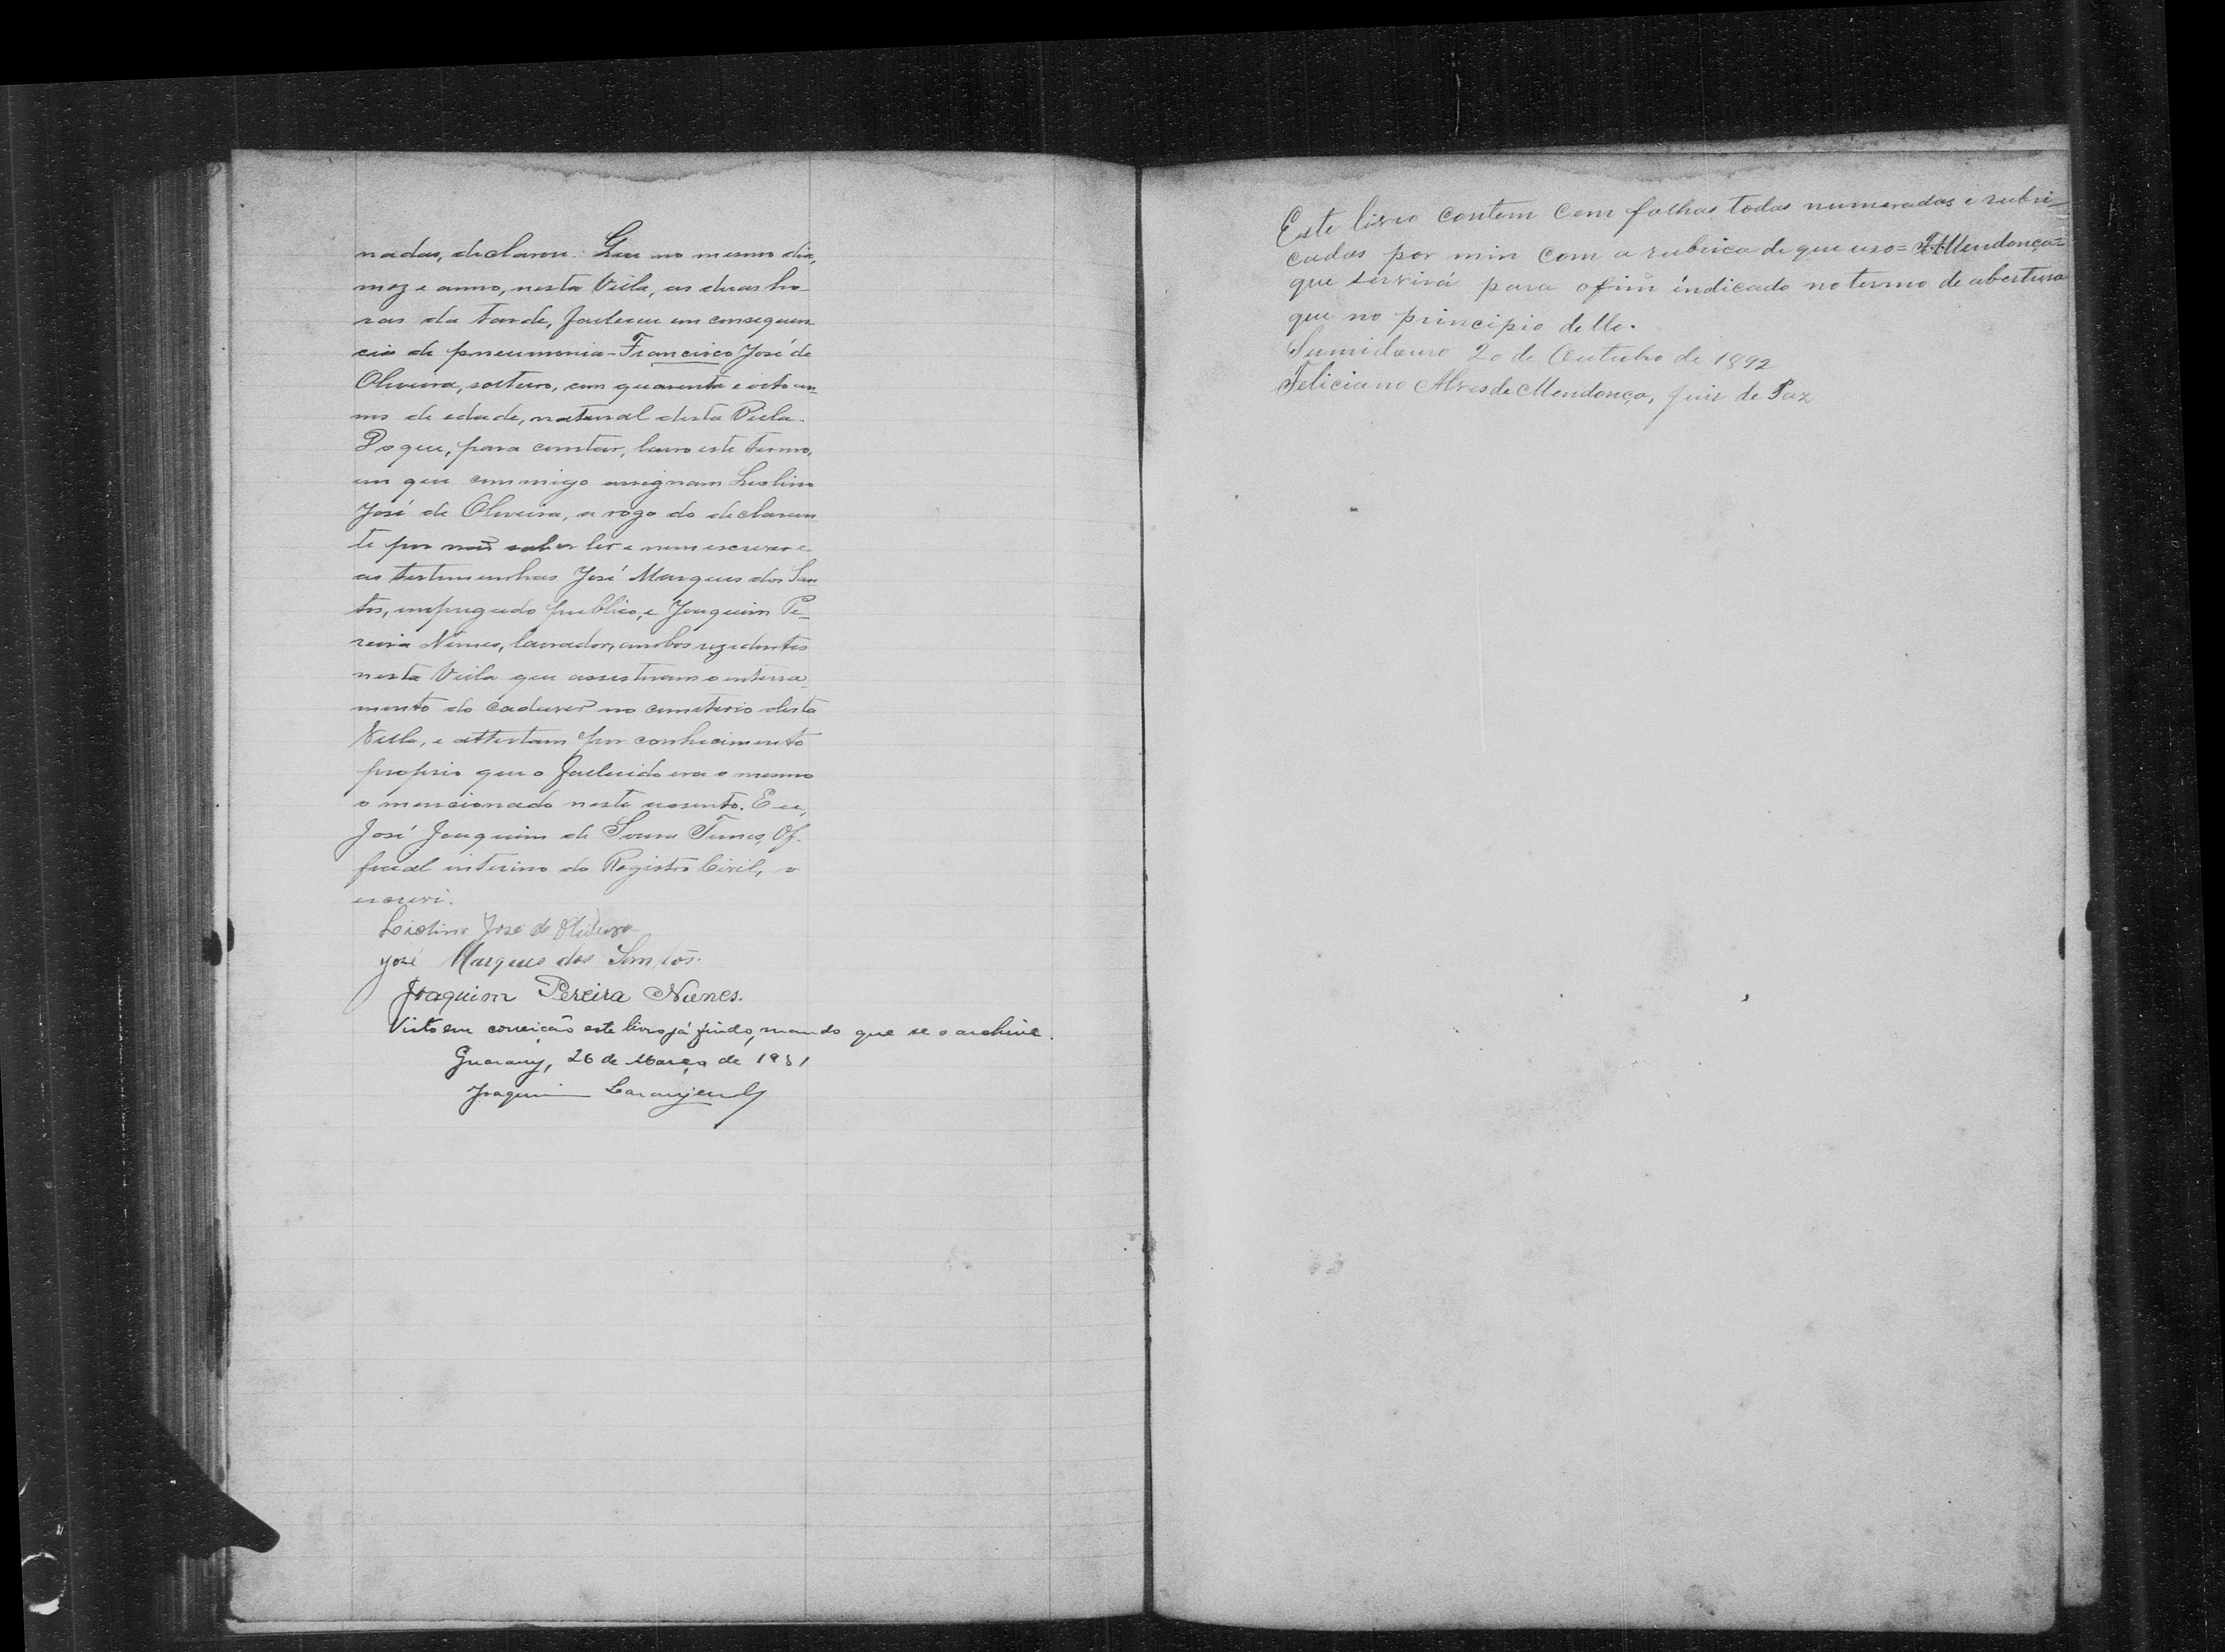 nadas, declarou: Que no mesmo dia,
mez e anno, nesta Villa, as duas ho-
ras da tarde, falleceu em consequen-
cia de pneumonia - Francisco José de
Oliveira, solteiro, com quarenta e oito an-
nos de edade, natural desta Villa.
Do que, para constar, lavro este termo,
em que commigo assignam Liolino
José de Oliveira, a rogo do declaran-
te por não saber ler e nem escrever e
as testemunhas José Marques dos San-
tos, empregado publico, e Joaquim Pe-
reira Nunes, lavrador, ambos rezidentes
nesta Villa que assistiram o enterra-
mento do cadaver no cemiterio desta
Villa, e attestam por conhecimento
proprio que o fallecido era o mesmo
o mencionado neste assento. Eu,
José Joaquim de Souza Of-
ficial interino do Registro Civil, o
escrevi.
Liolino José de Oliveira
José Marques dos Santos.
Joaquim Pereira Nunes.
Visto em correição este livro já findo, mando que se o archive.
Guarany, 26 de Março de 1931
Joaquim
Este livro contem cem folhas todas numeradas e rubri-
cadas por min com a rubrica de que uso = FAMendonça =
que servirá para o fim indicado no termo de abertura
que no principio delle.
Sumidouro 20 de Outubro de 1892
Feliciano Alves de Mendonça, Juiz de Paz